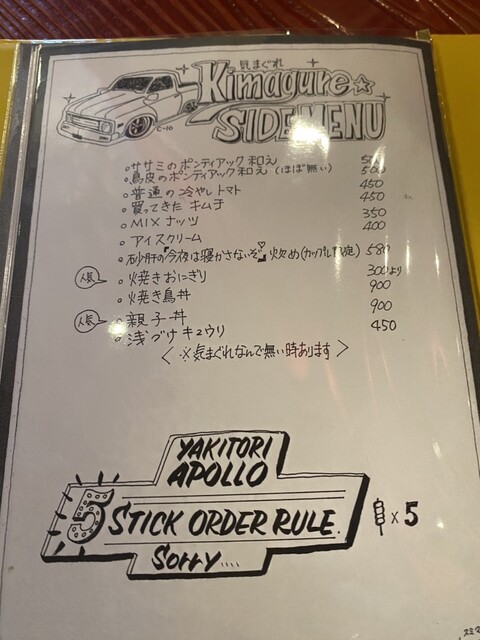 気まぐれ
Kimagure☆
SIDEMENU
C-10
・ササミのポンティアック和え 500
・鳥皮のポンティアック和え(ほぼ無い) 500
・普通の冷やしトマト 450
・買ってきたキムチ 450
・MIXナッツ 350
・アイスクリーム 400
・砂肝の「今夜は寝かさないぞ♡」炊め(カップル限定) 580
人気 ・焼きおにぎり 300より
・焼き鳥丼 900
人気 ・親子丼 900
・浅づけキュウリ 450
<※気まぐれなんで無い時あります>
YAKITORI
APOLLO
5 STICK ORDER RULE.
Sorry....
x 5